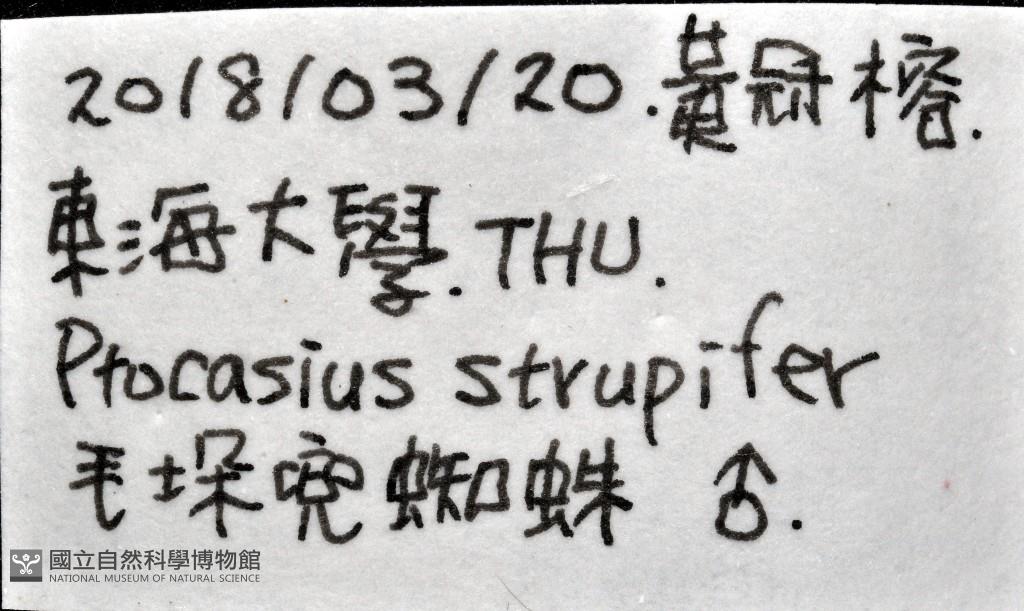 2018/03/20.黃冠榕.
東海大學.THU.
Ptocasius strupifer
毛垛兜蜘蛛 ♂.
國立自然科學博物館
NATIONAL MUSEUM OF NATURAL SCIENCE